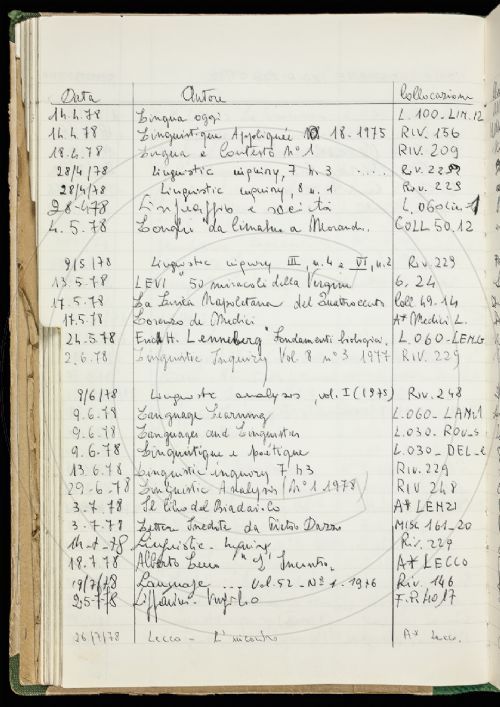 Data Autore Collocazione
14.4.78 Lingua oggi L.100-LIN.12
14.4.78 Linguistique Appliquée 18.1975 RIV.156
18.4.78 Lingua e Contesto N°1 RIV.209
28/4/78 Linguistic inquiry, 7 n.3 ..... Riv.229
28/4/78 Linguistic inquiry, 8 n.1 Riv.229
28-4-78 Linguaggio e società L.060
4.5.78 Longhi "da Cimabue a Morandi. COLL 50.12
9/5/78 Linguistic inquiry III, n.4 e VI, n.2 Riv.229
13.5.78 LEVI "50 miracoli della Vergine 6.24
17.5.78 La Lirica Napoletana del Quattrocento Coll 49.14
17.5.78 Lorenzo de Medici A* Medici L.
24.5.78 Erich H. Lenneberg "Fondamenti biologici. L.060-LEN.
2.6.78 Linguistic Inquiry Vol. 8 n°3 1977 RIV.229
9/6/78 Linguistic analysis, vol. I (1975) Riv.248
9.6.78 Language Learning L.060-LAN.1
9.6.78 Languages and Linguistics L.030-ROU-s
9.6.78 Linguistique e poétique L.030-DEL-
13.6.78 Linguistic inquiry 7 n3 RIV.229
29-6-78 Linguistic Analysis (N°1 1978) RIV 248
3.7.78 Il Libro del A* LENZI
3.7.78 Lettere Inedite da MISC 161-20
14-7-78 Linguistic - Inquiry Riv.229
18.7.78 Alberto Lecco "L' Incontro" A* LECCO
19/7/78 Language ... Vol.52-N°1-1976 Riv.146
25-7-78 Virgilio
26/7/78 Lecco - L'incontro A* Lecco.